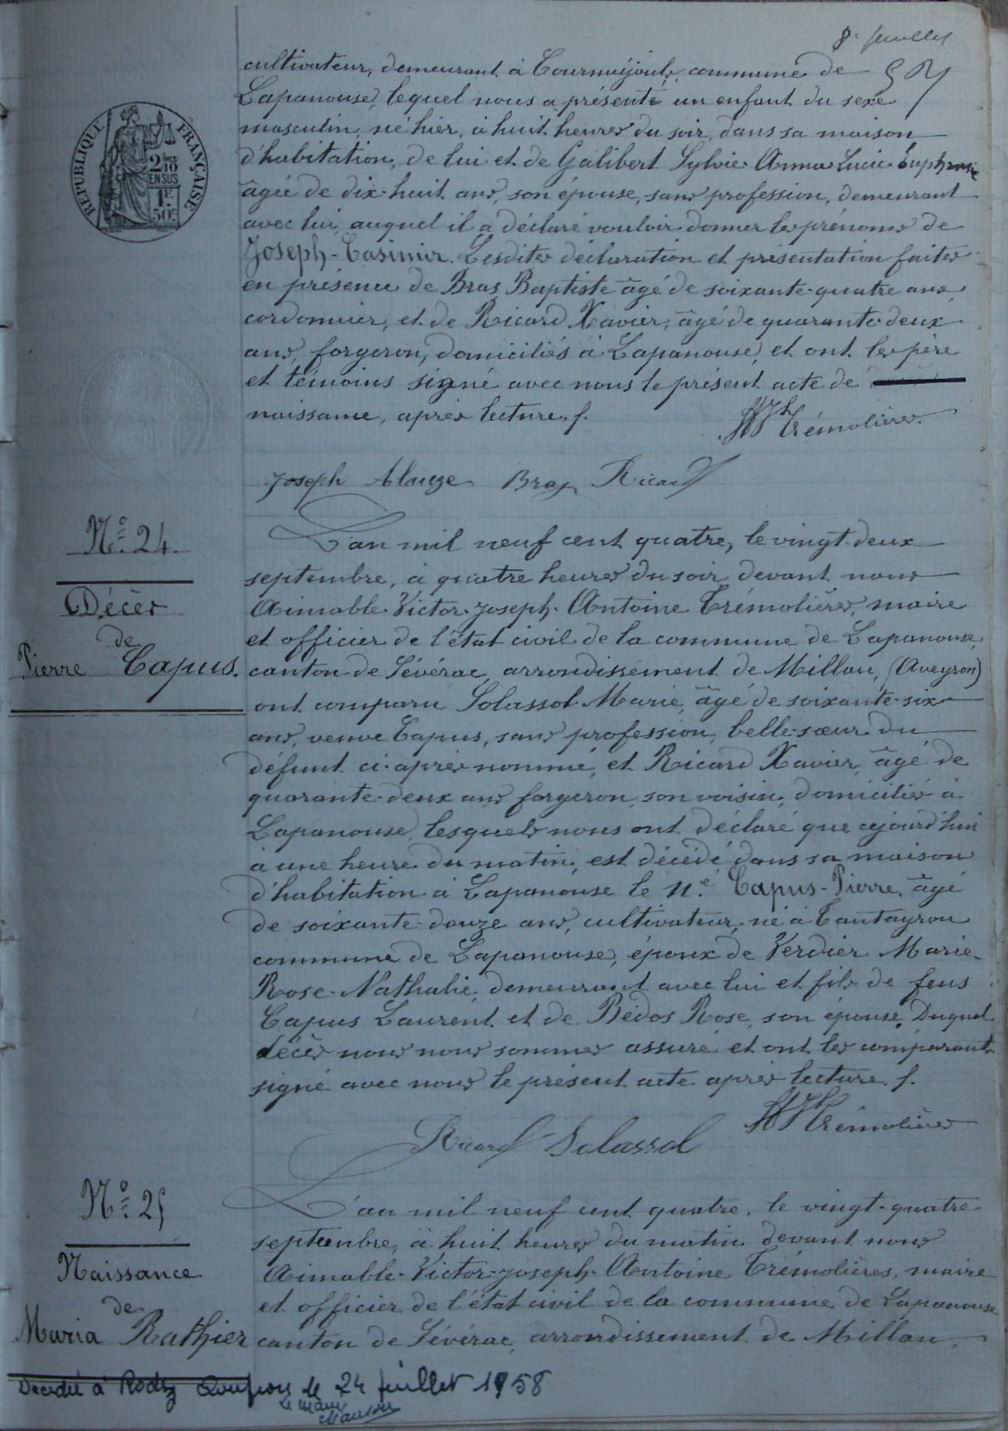 8e feuillet
cultivateur, demeurant à Tournuéjouls, commune de
Lapanouse, lequel nous a présenté un enfant du sexe
masculin, né hier, à huit heures du soir, dans sa maison
d'habitation, de lui et de Galibert Sylvie Anna Lucie Euphrasie
âgée de dix-huit ans, son épouse, sans profession, demeurant
avec lui, auquel il a déclaré vouloir donner les prénoms de
Joseph-Casimir. Lesdites déclaration et présentation faites
en présence de Bras Baptiste âgé de soixante-quatre ans,
cordonnier, et de Ricard Xavier, âgé de quarante-deux
ans, forgeron, domiciliés à Lapanouse, et ont les père
et témoins signé avec nous le présent acte de
naissance, après lecture. f.
Trémolières
Joseph Alauze Bras Ricard
REPUBLIQUE FRANÇAISE
2/10 EN SUS
1F 50c
N° 24.
Décès
de
Pierre Capus.
L'an mil neuf cent quatre, le vingt-deux
septembre, à quatre heures du soir devant nous
Aimable-Victor-Joseph-Antoine Trémolières, maire
et officier de l'état civil de la commune de Lapanouse,
canton de Sévérac, arrondissement de Millau, (Aveyron)
ont comparu Solassol Marie, âgé de soixante-six
ans, veuve Capus, sans profession, belle-sœur du
défunt ci-après nommé, et Ricard Xavier, âgé de
quarante-deux ans forgeron, son voisin, domiciliés à
Lapanouse, lesquels nous ont déclaré que aujourd'hui
à une heure du matin, est décédé dans sa maison
d'habitation à Lapanouse le n.é Capus-Pierre, âgé
de soixante-douze ans, cultivateur, né à Tantayrou
commune de Lapanouse, époux de Verdier Marie-
Rose-Nathalie, demeurant avec lui et fils de feus
Capus Laurent et de Bédos Rose, son épouse. Duquel
décès nous nous sommes assuré et ont les comparants
signé avec nous le présent acte après lecture. f.
Trémolières
Ricard Solassol
N° 25
Naissance
de
Maria Rathier
L'an mil neuf cent quatre, le vingt-quatre
septembre, à huit heures du matin devant nous
Aimable-Victor-Joseph-Antoine Trémolières, maire
et officier de l'état civil de la commune de Lapanouse
canton de Sévérac, arrondissement de Millau,
Décédée à Rodez Aveyron le 24 juillet 1958
Le Maire